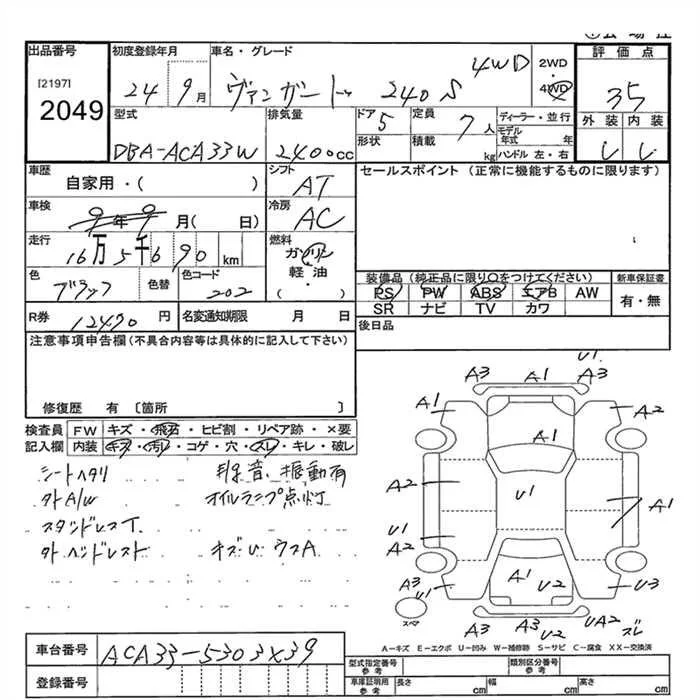 出品番号 初度登録年月 車名・グレード 評価点
[2197] 2049
24 9月 ヴァンガード 240 S 4WD
2WD・4WD
35
型式 排気量 ドア 5 定員 7人 ディーラー・並行
形状 積載 kg モデル年式 年
ハンドル 左・右
外装 内装
DBA-ACA33W 2400cc
レ レ
車歴 シフト セールスポイント (正常に機能するものに限ります)
自家用・( ) AT
車検 冷房
9年9月( 日) AC
走行 燃料
16万5千690km ガソリン
軽・油
・( )
色 色替 色コード
ブラック 202
装備品 (純正品に限り○をつけてください) 新車保証書
PS PW ABS エアB AW 有・無
SR ナビ TV カワ
R券 12470円 名変通知期限 月 日 後日品
注意事項申告欄(不具合内容等は具体的に記入して下さい)
修復歴 有 〔箇所 〕
検査員 FW キズ・飛石・ヒビ割・リペア跡・×要
記入欄 内装 キズ・汚レ・コゲ・穴・スレ・キレ・破レ
シートヘタリ 異音、振動有
社外A/W オイルランプ点灯
スタッドレスT
オズU ウスA
U1
A3 A1 A3
A1 A2
A1
A2 U1 A1
U1
A2
A3 U1 A1 U2 U3
スペア A3 A3 U2 UA2 ズレ
A-キズ E-エクボ U-凹み W-補修跡 S-サビ C-腐食 XX-交換済
車台番号 ACA33-5303X39
登録番号
型式指定番号 参考 類別区分番号 参考
車庫証明用 参考 長さ cm 幅 cm 高さ cm